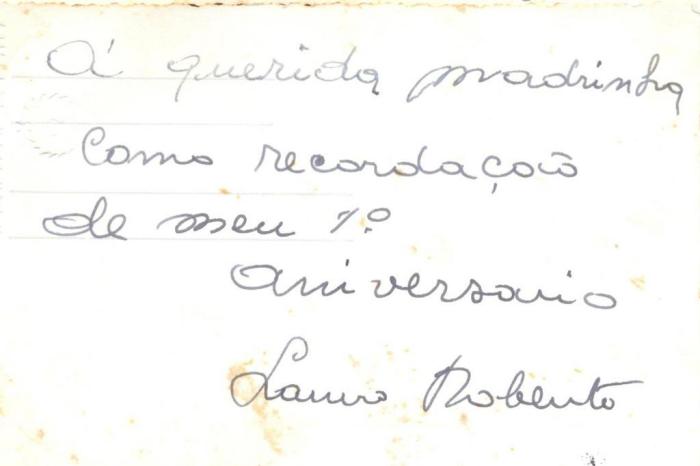 Á querida madrinha
como recordação
de meu 1º
aniversario
Lauro Roberto